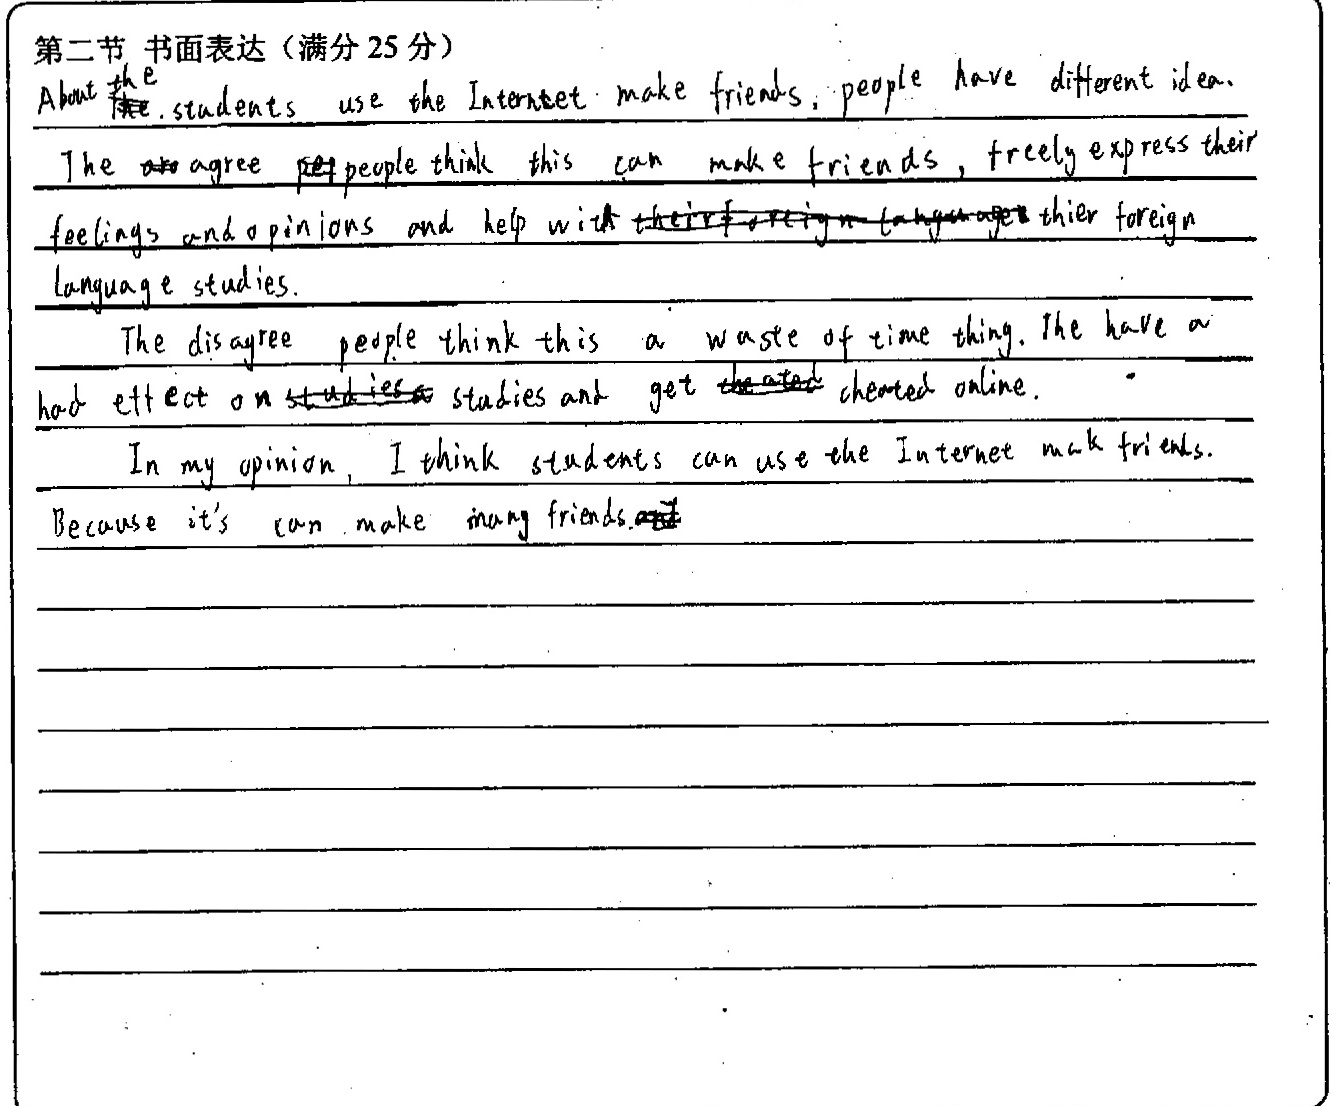 第二节 书面表达（满分 25 分）
About the students use the Internet make friends, people have different idea.
The agree people think this can make friends, freely express their
feelings and opinions and help with thier foreign
language studies.
The disagree people think this a waste of time thing. The have a
had effect on studies and get cheated online.
In my opinion, I think students can use the Internet mak friends.
Because it's can make many friends.